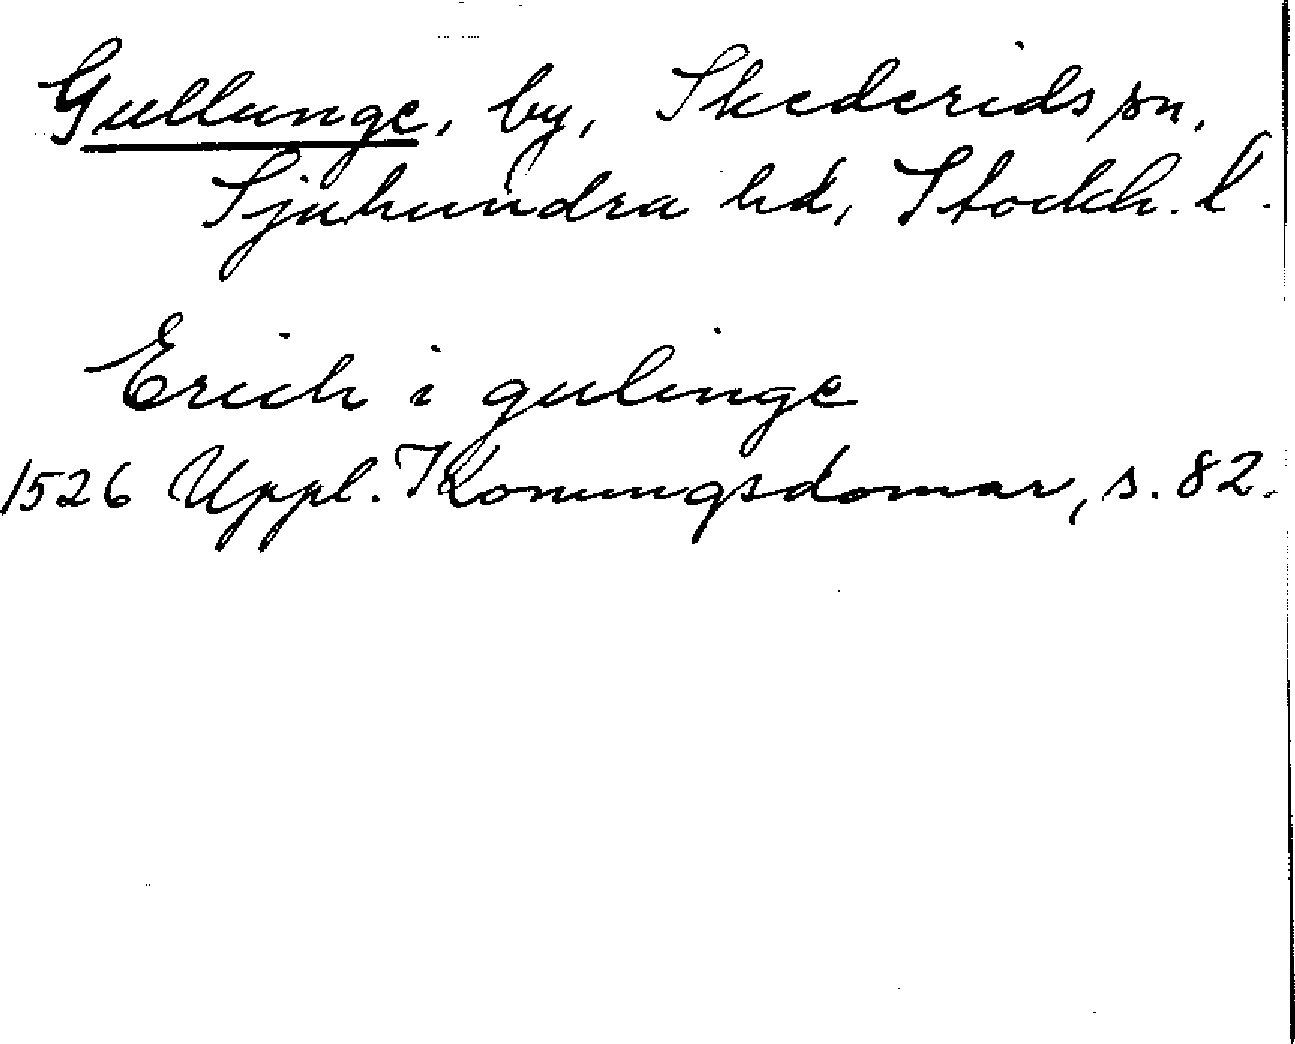 Gullunge, by, Skederids sn,
Sjuhundra hd, Stockh. l.
Erich i gulinge
1526 Uppl. Konungsdomar, s. 82.